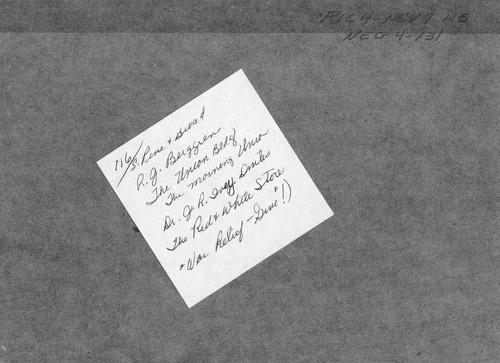 NEG 4-131
116/ So. Pine & Broad
R. J. Berggren
The Union Bldg
The Morning Union
Dr. J. R. Ivey, Dentist
The Red & White Store
"War Relief - Give"!)